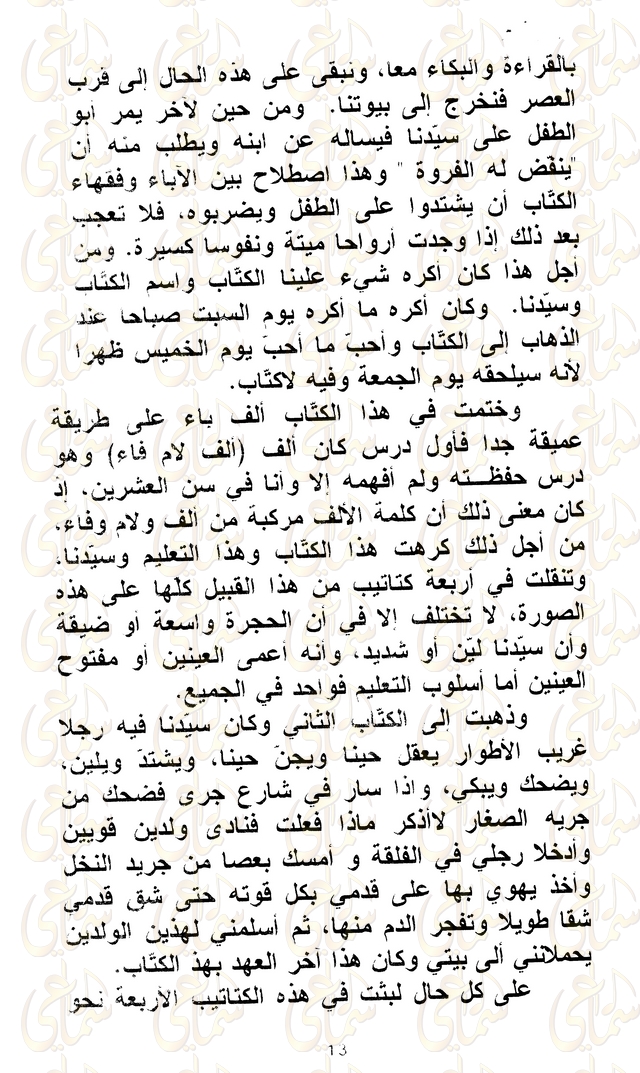 بالقراءة والبكاء معا، ونبقى على هذه الحال إلى قرب
العصر فنخرج إلى بيوتنا. ومن حين لآخر يمر أبو
الطفل على سيّدنا فيساله عن ابنه ويطلب منه أن
"ينفّض له الفروة " وهذا اصطلاح بين الآباء وفقهاء
الكتّاب أن يشتدوا على الطفل ويضربوه، فلا تعجب
بعد ذلك إذا وجدت أرواحا ميتة ونفوسا كسيرة. ومن
أجل هذا كان أكره شيء علينا الكتّاب واسم الكتّاب
وسيّدنا. وكان أكره ما أكره يوم السبت صباحا عند
الذهاب إلى الكتّاب وأحبّ ما أحبّ يوم الخميس ظهرا
لأنه سيلحقه يوم الجمعة وفيه لاكتّاب.
وختمت في هذا الكتّاب ألف باء على طريقة
عميقة جدا فأول درس كان ألف (ألف لام فاء) وهو
درس حفظته ولم أفهمه إلا وأنا في سن العشرين، إذ
كان معنى ذلك أن كلمة الألف مركبة من ألف ولام وفاء،
من أجل ذلك كرهت هذا الكتّاب وهذا التعليم وسيّدنا،
وتنقلت في أربعة كتاتيب من هذا القبيل كلّها على هذه
الصورة، لا تختلف إلا في أن الحجرة واسعة أو ضيقة
وأن سيّدنا ليّن أو شديد، وأنه أعمى العينين أو مفتوح
العينين أما أسلوب التعليم فواحد في الجميع.
وذهبت إلى الكتّاب الثاني وكان سيّدنا فيه رجلا
غريب الأطوار يعقل حينا ويجنّ حينا، ويشتدّ ويلين،
ويضحك ويبكي، واذا سار في شارع جرى فضحك من
جريه الصغار لاأذكر ماذا فعلت فنادى ولدين قويين
وأدخلا رجلي في الفلقة و أمسك بعصا من جريد النخل
وأخذ يهوي بها على قدمي بكل قوته حتى شق قدمي
شقا طويلا وتفجر الدم منها، ثم أسلمني لهذين الولدين
يحملانني ألى بيتي وكان هذا آخر العهد بهذ الكتّاب.
على كل حال لبثت في هذه الكتاتيب الأربعة نحو
13